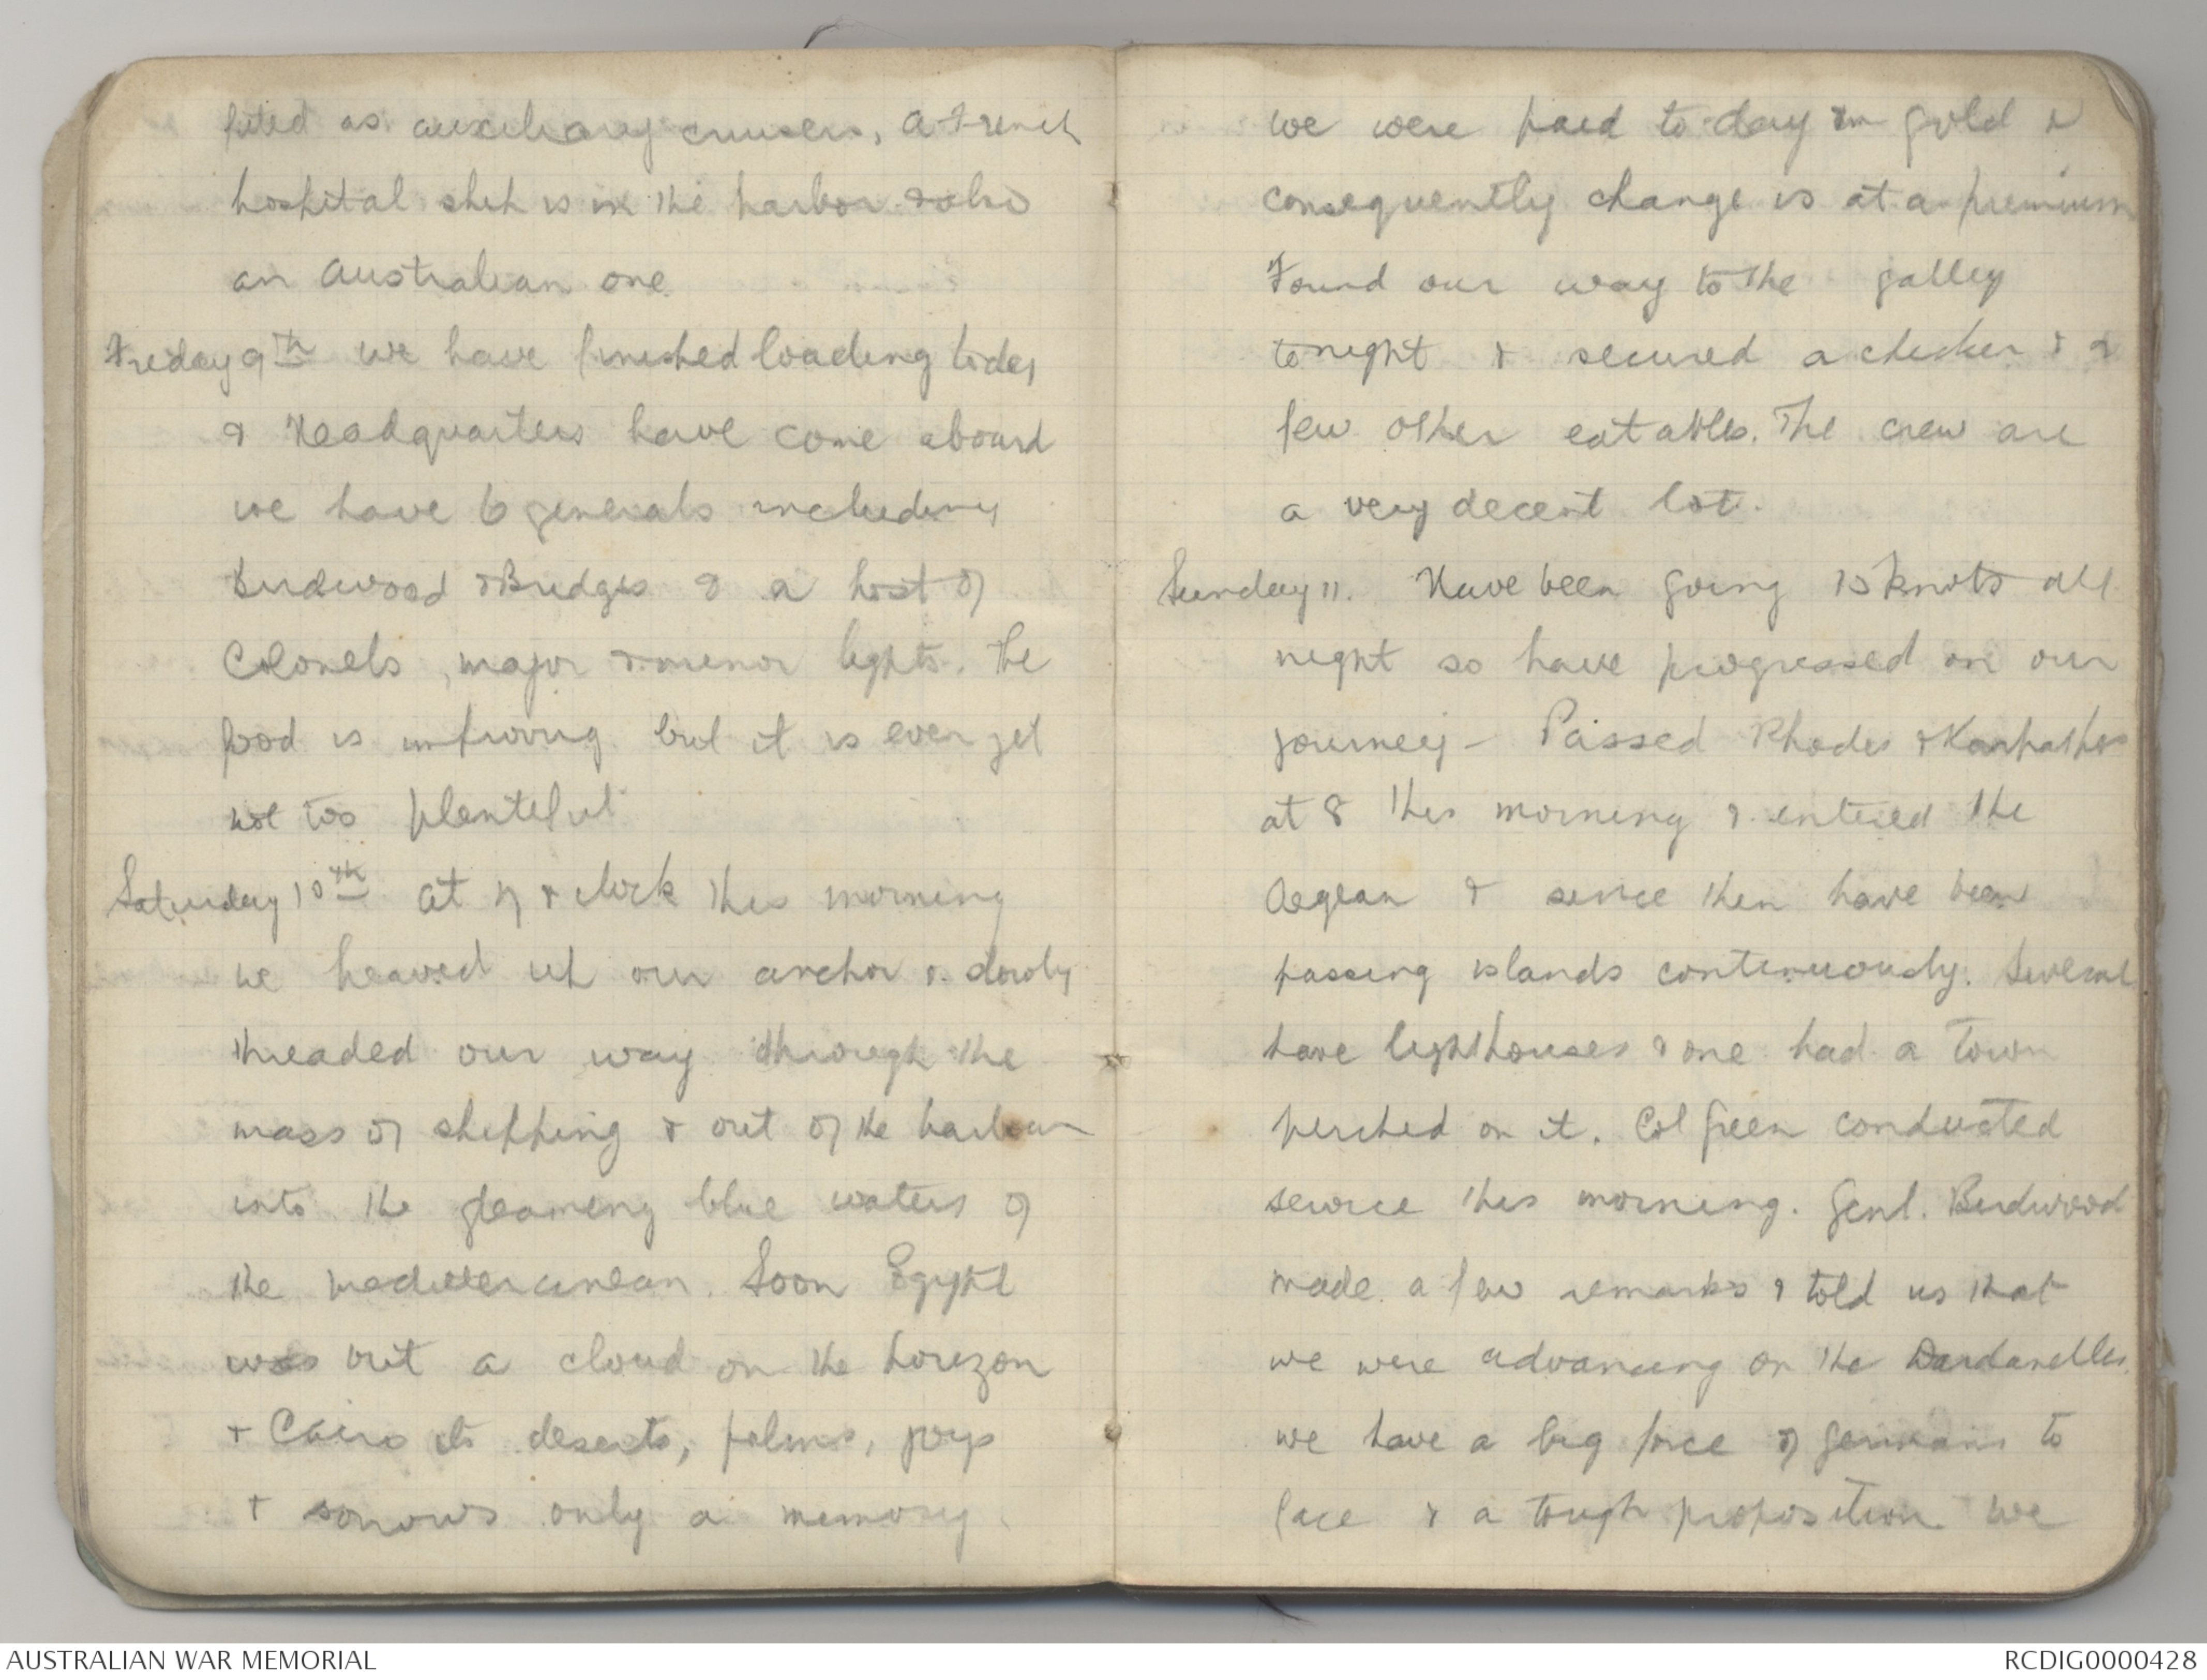 fitted as auxiliary cruisers, a French
hospital ship is in the harbor & also
an Australian one.
Friday 9th we have finished loading today
& Headquarters have come aboard
we have 6 generals including
Birdwood & Bridges & a host of
Colonels, major & minor lights. The
food is improving but it is even yet
not too plentiful
Saturday 10th At 7 o clock this morning
we heaved up our anchor & slowly
threaded our way through the
mass of shipping & out of the harbour
into the gleaming blue waters of
the mediterranean. Soon Egypt
was but a cloud on the horizon
+ Cairo its deserts, palms, joys
+ sorrows only a memory.
we were paid to-day in gold &
consequently change is at a premium
Found our way to the galley
tonight & secured a chicken & a
few other eatables. The crew are
a very decent lot.
Sunday 11. Have been going 15 knots all
night so have progressed on our
journey - Passed Rhodes & Karpathos
at 8 this morning & entered the
Aegean & since then have been
passing islands continuously. Several
have lighthouses & one had a town
perched on it. Col Green conducted
service this morning. Genl. Birdwood
made a few remarks & told us that
we were advancing on the Dardanelles.
we have a big force of germans to
face & a tough proposition we
AUSTRALIAN WAR MEMORIAL
RCDIG0000428